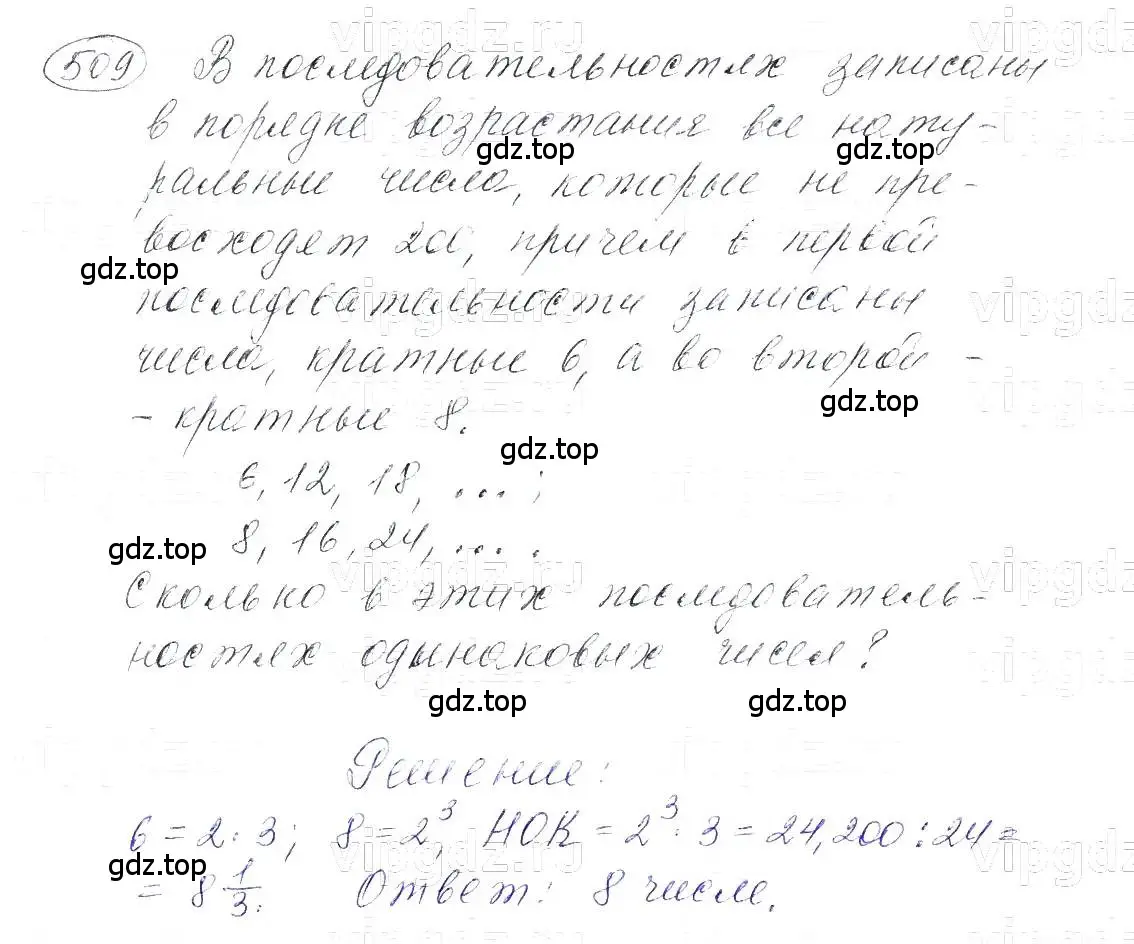 509 В последовательностях записаны
в порядке возрастания все нату-
ральные числа, которые не пре-
восходят 200, причем в первой
последовательности записаны
числа, кратные 6, а во второй -
- кратные 8.
6, 12, 18, ... ;
8, 16, 24, ... .
Сколько в этих последователь-
ностях одинаковых чисел?
Решение:
6 = 2 · 3; 8 = 2³, НОК = 2³ · 3 = 24, 200 : 24 =
= 8 1/3. Ответ: 8 чисел.
vipgdz.ru
gdz.top
gdz.top
gdz.top
vipgdz
gdz.top
gdz.top
gdz.top
vipgdz.ru
gdz.top
gdz.top
gdz.top